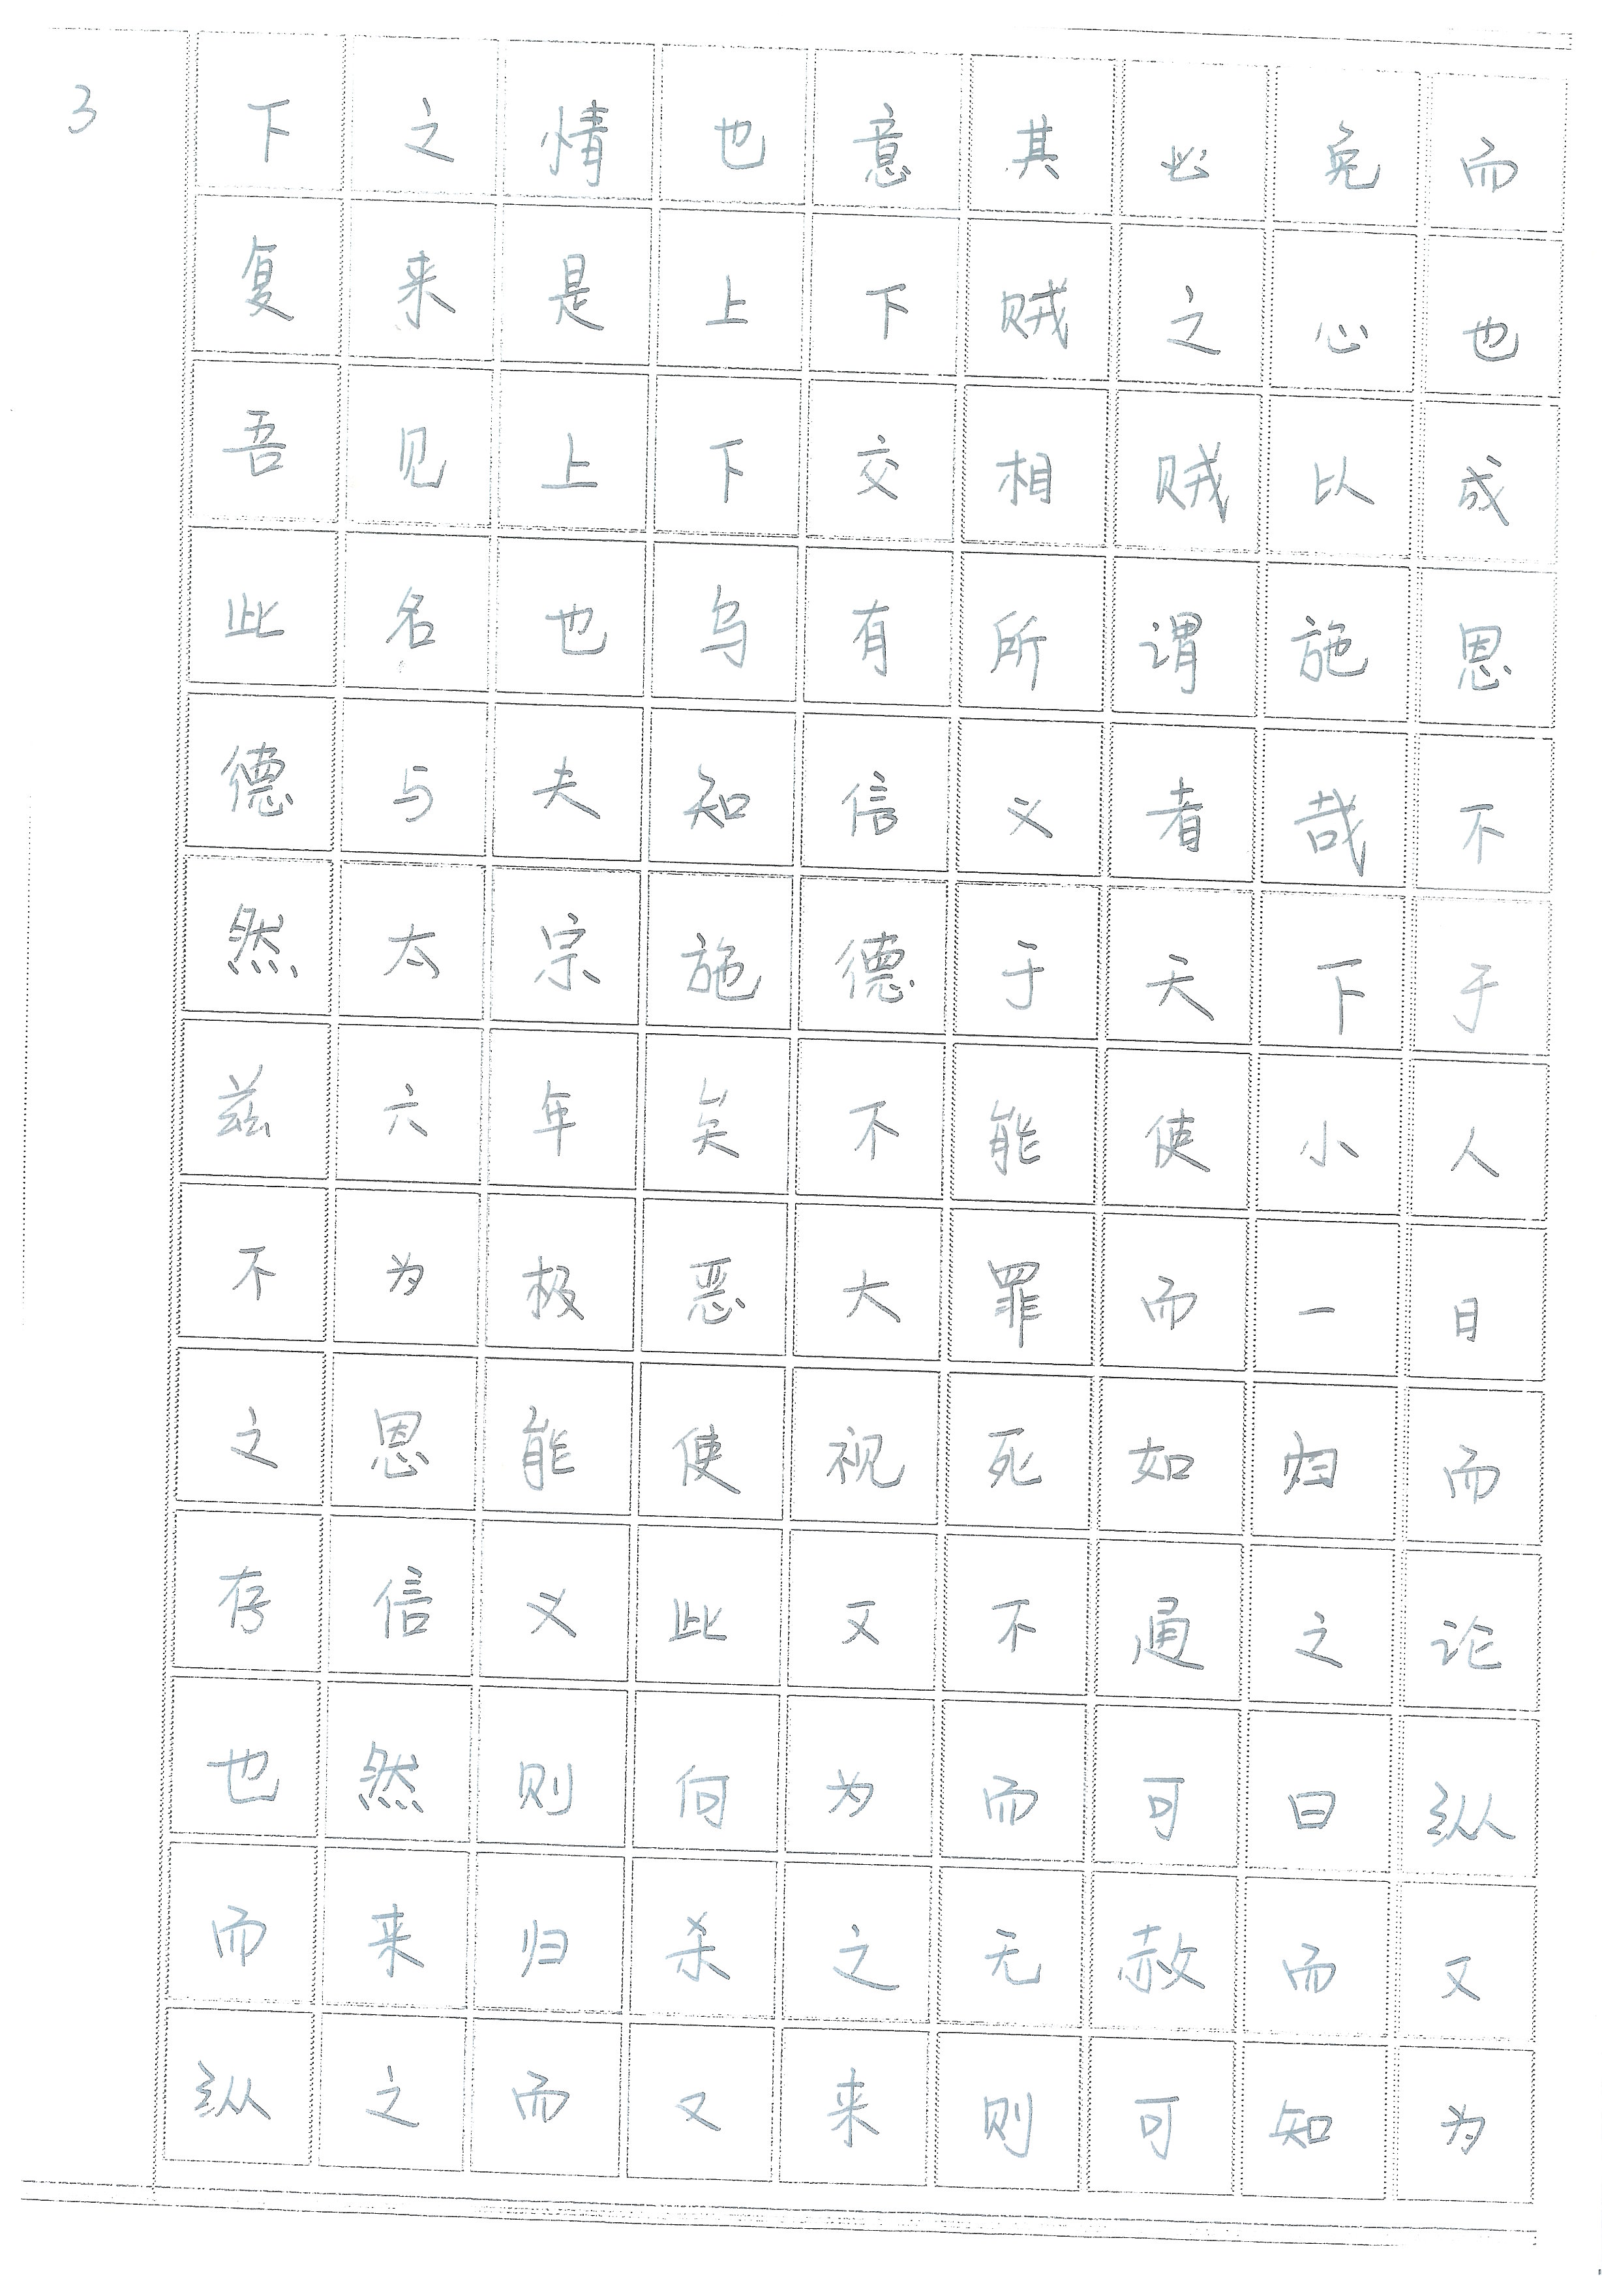 3
下之情也意其必免而
复来是上下贼之心也
吾见上下交相贼以成
此名也乌有所谓施恩
德与夫知信义者哉不
然太宗施德于天下于
兹六年矣不能使小人
不为极恶大罪而一日
之恩能使视死如归而
存信义此又不通之论
也然则何为而可曰纵
而来归杀之无赦而又
纵之而又来则可知为